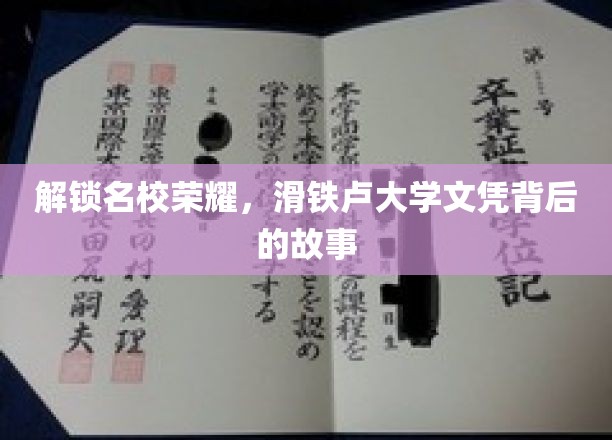 解锁名校荣耀，滑铁卢大学文凭背后
的故事
第 号
卒業証 学位記
日生
本学商学部 科所定の課程を
修めて本学 ことを認め
学士(商学)の学位 する
平成
東京国際大学 田村愛理
東京国際大学長田尻嗣夫